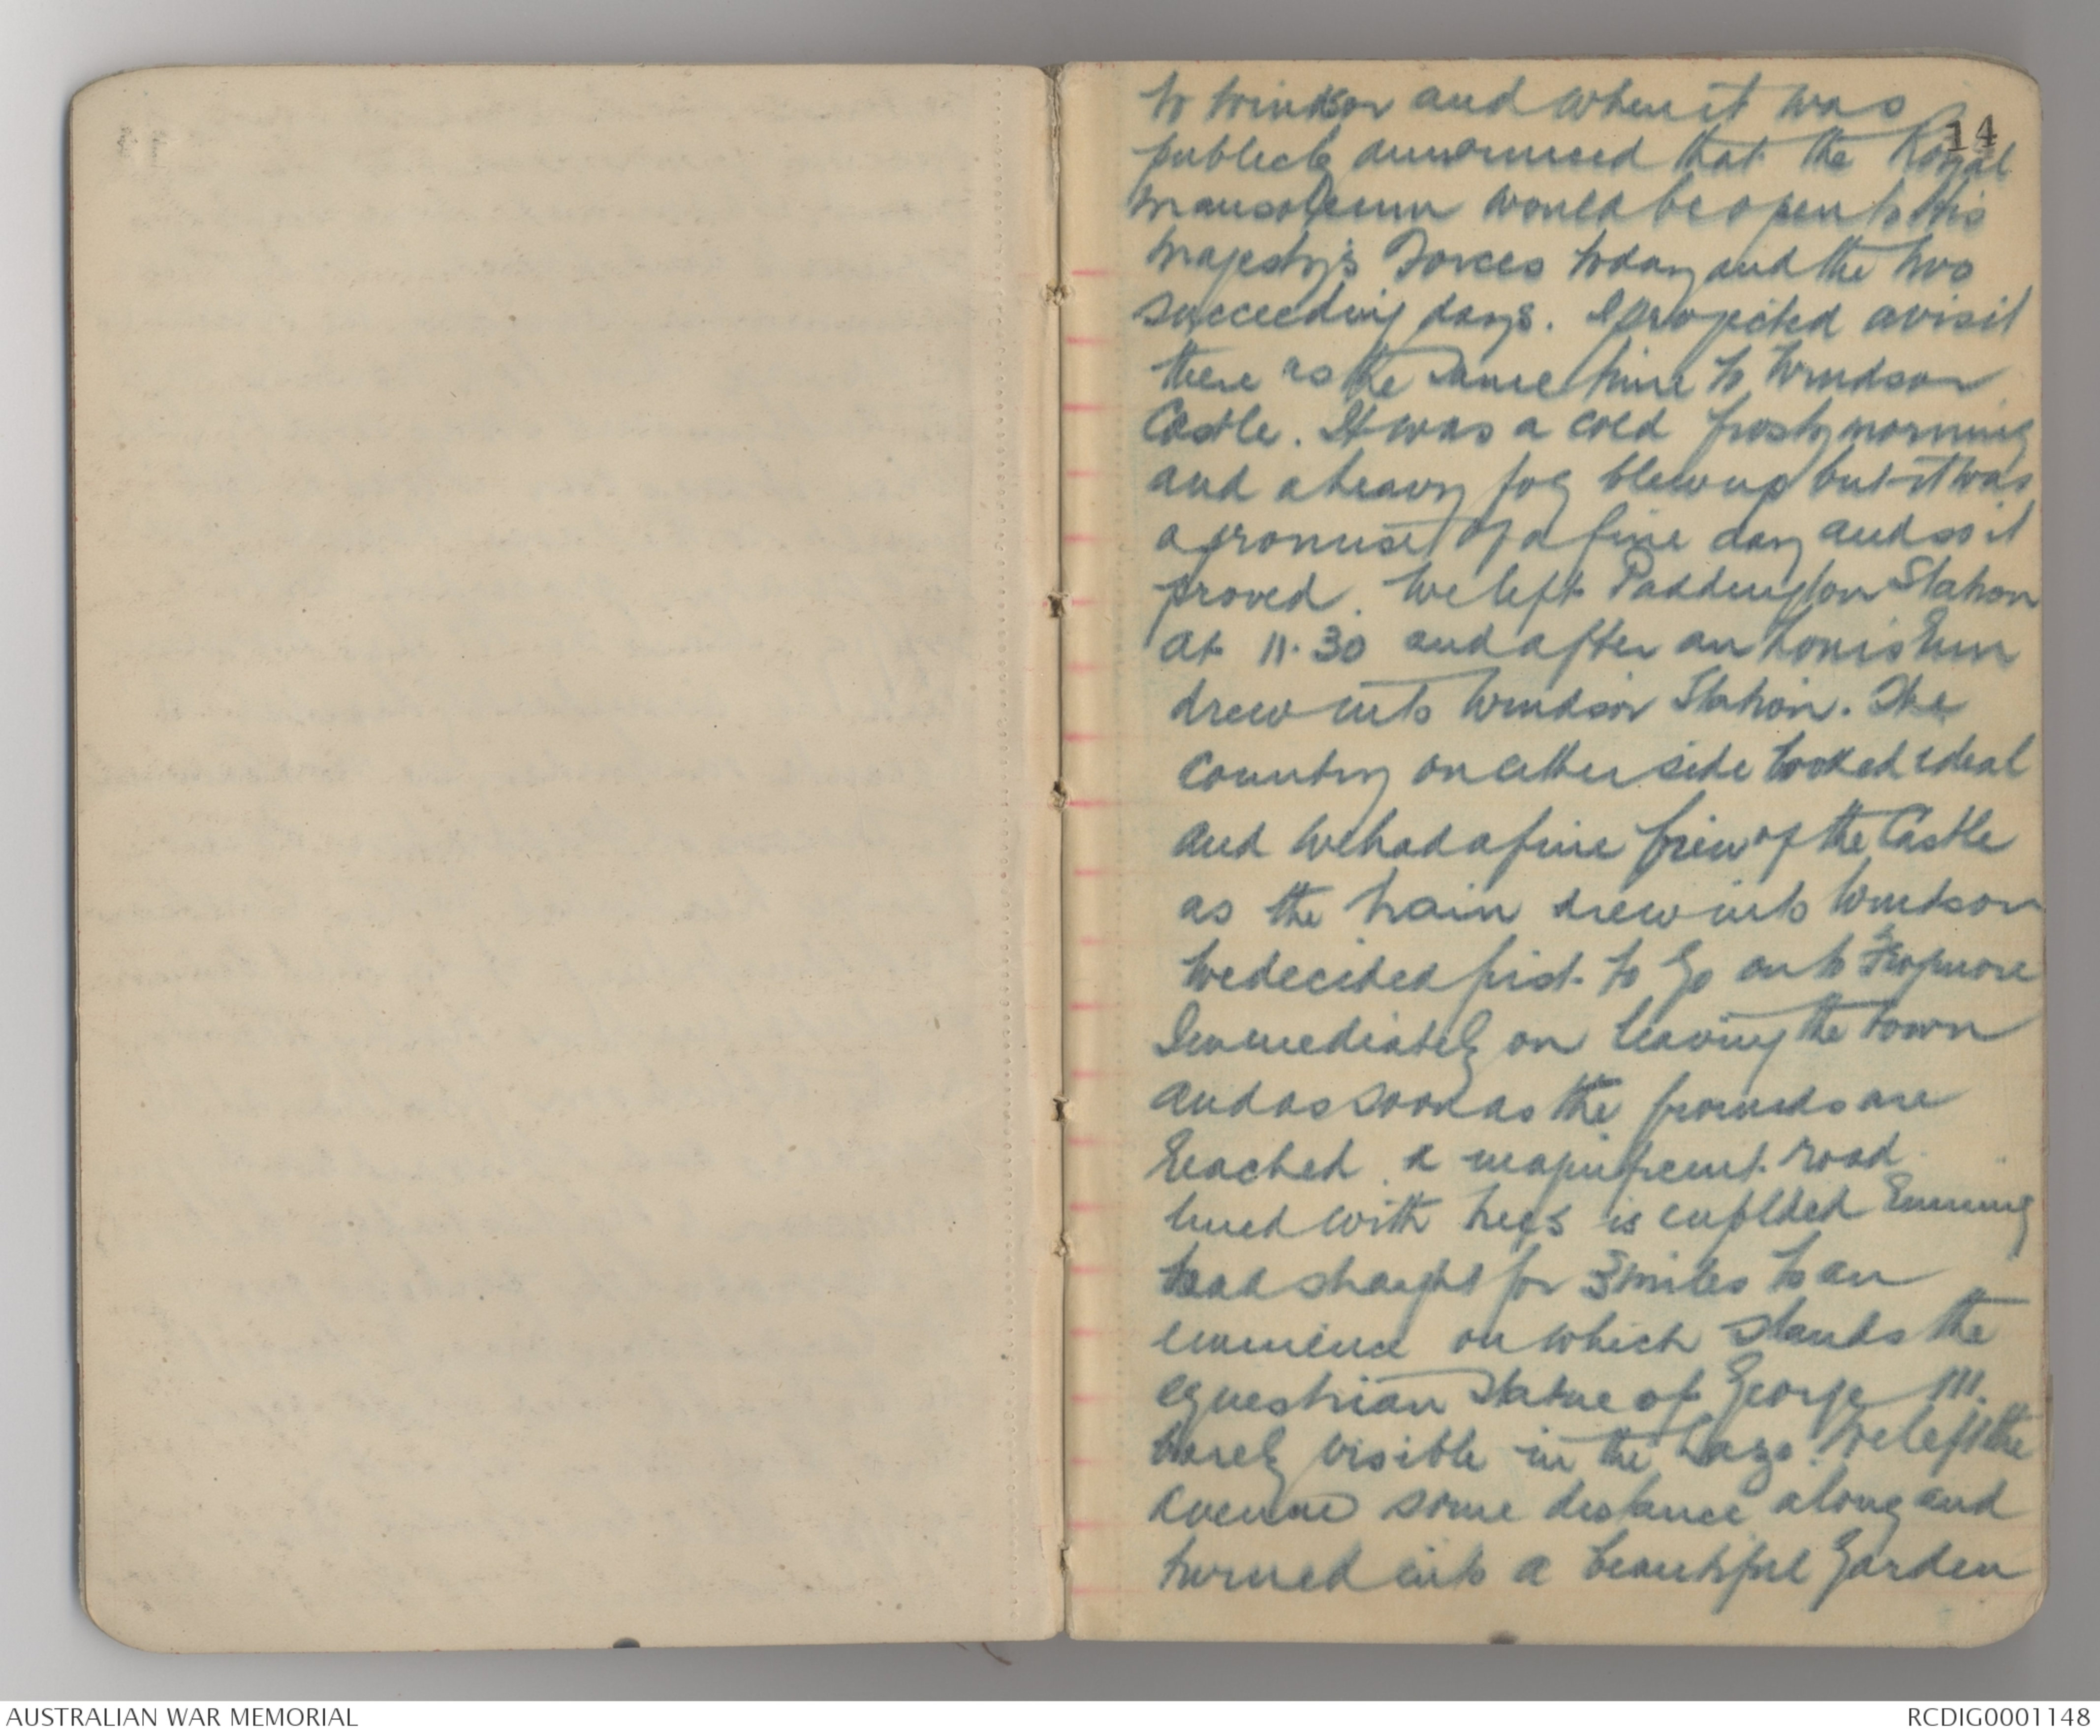 14
to Windsor and when it was
publicly announced that the Royal
Mausoleum would be open to His
Majesty's Forces today and the two
succeeding days. I projected a visit
there as the same time to Windsor
Castle. It was a cold frosty morning
and a heavy fog blew up but it was
a promise of a fine day and so it
proved. We left Paddington Station
at 11.30 and after an hours run
drew into Windsor Station. The
country on either side looked ideal
and we had a fine view of the Castle
as the train drew into Windsor
We decided first to go on to Frogmore
Immediately on leaving the town
and as soon as the grounds are
reached a magnificent road
lined with trees is running
straight for 3 miles to an
eminence on which stands the
equestrian statue of George III.
barely visible in the haze. We left the
avenue some distance along and
turned into a beautiful garden
AUSTRALIAN WAR MEMORIAL
RCDIG0001148